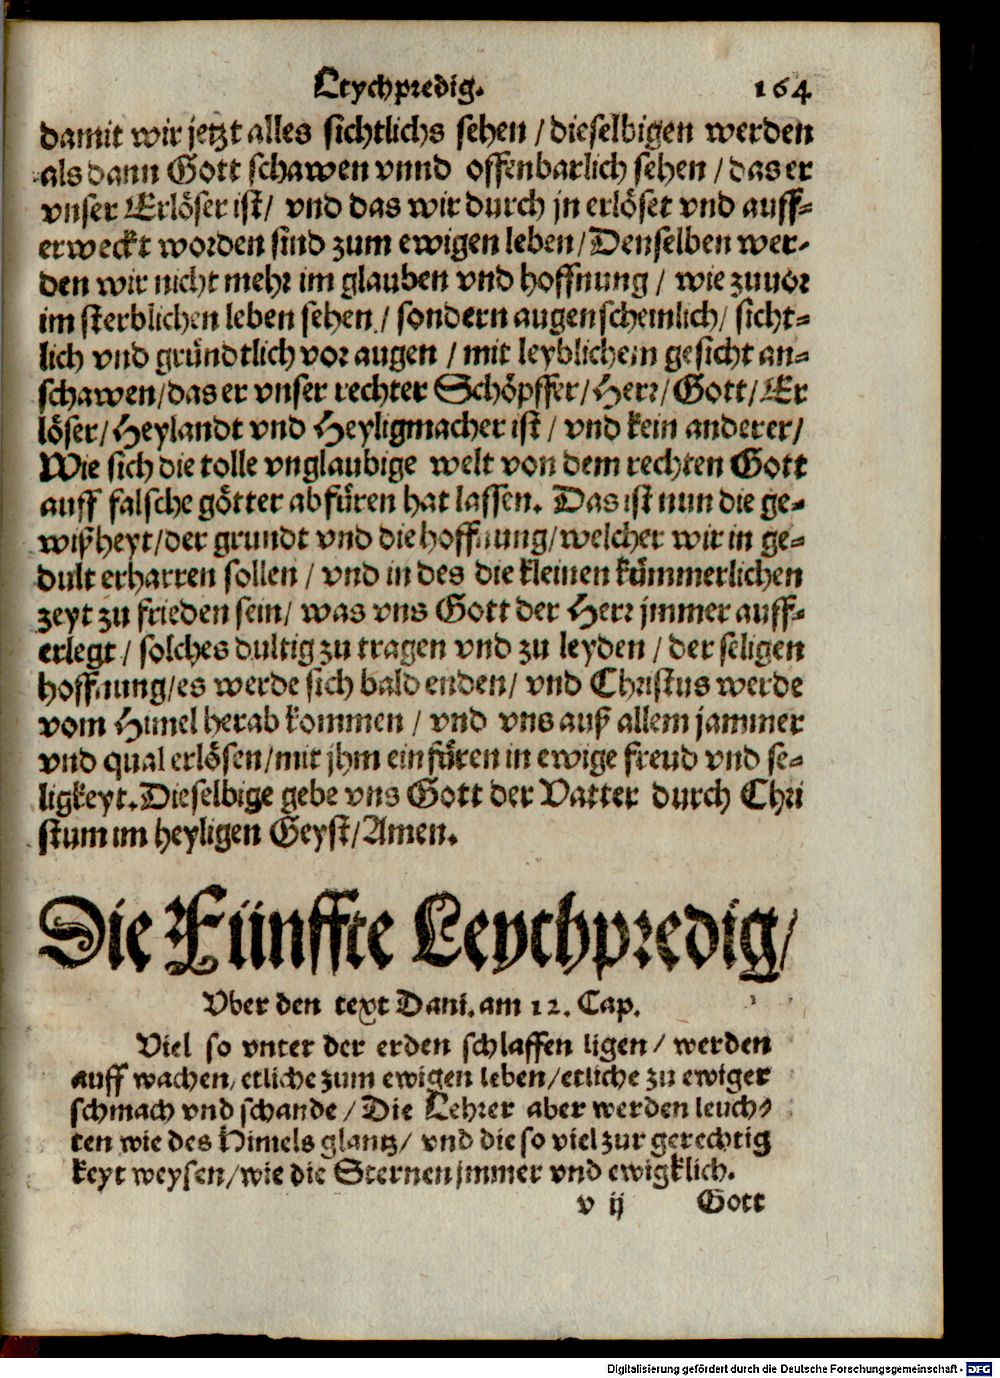 Leychpredig.
164
damit wir jetzt alles sichtlichs sehen / dieselbigen werden
als dann Gott schawen vnnd offenbarlich sehen / das er
vnser Erlöser ist / vnd das wir durch jn erlöset vnd auff-
erweckt worden sind zum ewigen leben / Denselben wer-
den wir nicht mehr im glauben vnd hoffnung / wie zuuor
im sterblichen leben sehen / sondern augenscheinlich / sicht-
lich vnd gründtlich vor augen / mit leyblichem gesicht an-
schawen / das er vnser rechter Schöpffer / Herr / Gott / Er
löser / Heylandt vnd Heyligmacher ist / vnd kein anderer /
Wie sich die tolle vnglaubige welt von dem rechten Gott
auff falsche götter abfüren hat lassen. Das ist nun die ge-
wißheyt / der grundt vnd die hoffnung / welcher wir in ge-
dult erharren sollen / vnd in des die kleinen kümmerlichen
zeyt zu frieden sein / was vns Gott der Herr jmmer auff-
erlegt / solches dultig zu tragen vnd zu leyden / der seligen
hoffnung / es werde sich bald enden / vnd Christus werde
vom Himel herab kommen / vnd vns auß allem jammer
vnd qual erlösen / mit jhm einfüren in ewige freud vnd se-
ligkeyt. Dieselbige gebe vns Gott der Vatter durch Chri
stum im heyligen Geyst / Amen.
Die Fünffte Leychpredig /
Vber den text Dani. am 12. Cap.
Viel so vnter der erden schlaffen ligen / werden
auff wachen / etliche zum ewigen leben / etliche zu ewiger
schmach vnd schande / Die Lehrer aber werden leuch-
ten wie des Himels glantz / vnd die so viel zur gerechtig
keyt weysen / wie die Sternen jmmer vnd ewigklich.
v ij
Gott
Digitalisierung gefördert durch die Deutsche Forschungsgemeinschaft - DFG